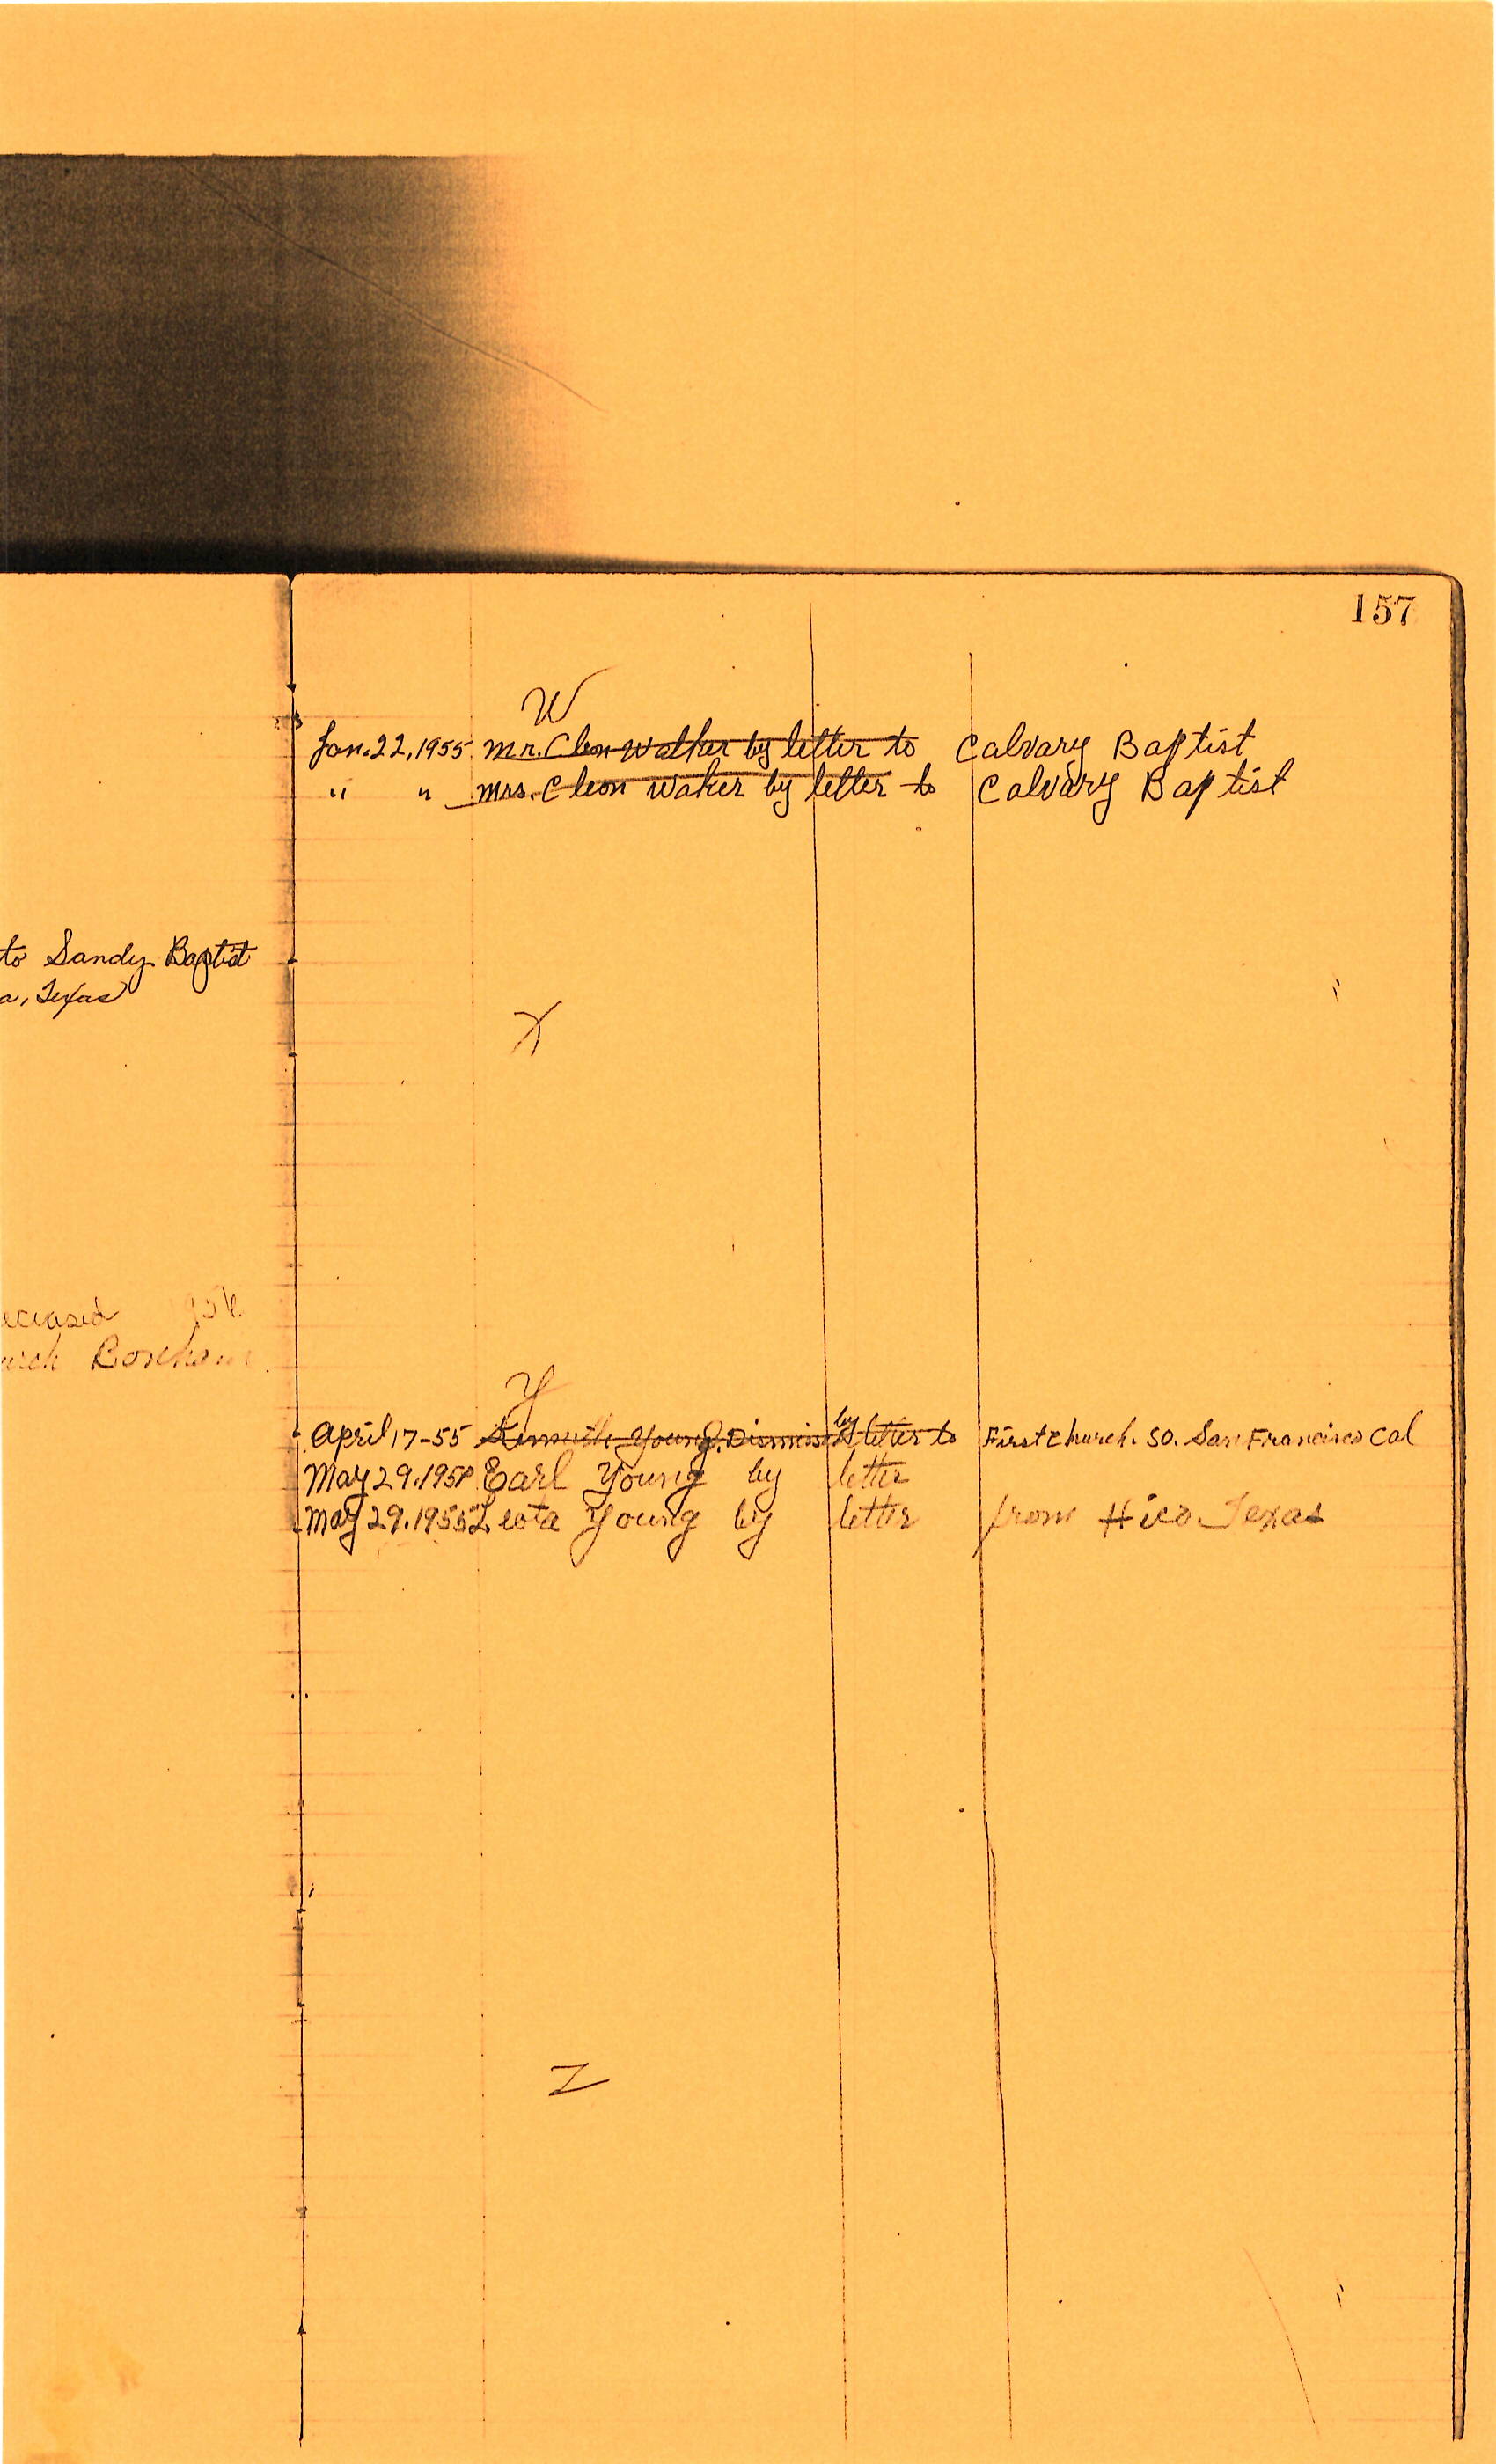 157
W
Jan. 22, 1955 Mr. Cleon Walker by letter to Calvary Baptist
" " Mrs. Cleon Waker by letter to Calvary Baptist
to Sandy Baptist
a, Texas
X
eceased
Y
April 17-55 Kenneth Young. Dismissed by letter to First Church. So. San Francisco Cal
May 29, 195 Earl Young by letter
May 29, 1955 Leota Young by letter from Hico Texas
Z